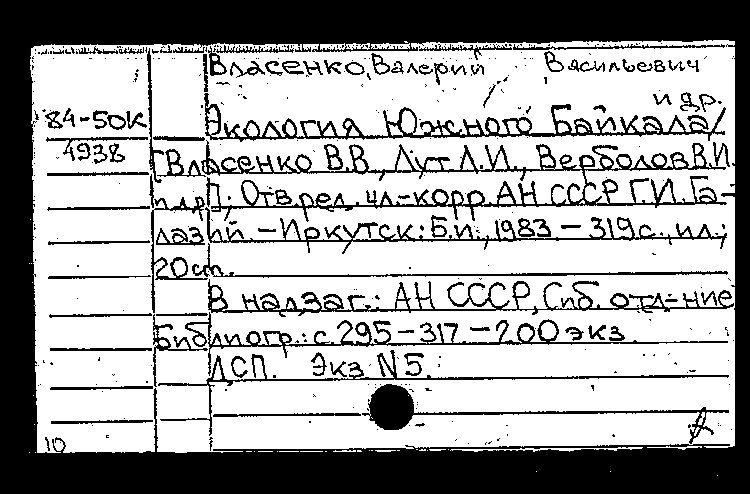 Власенко, Валерий Васильевич
и др.
84-50К
4938
Экология Южного Байкала/
[Власенко В.В., Лут Л.И., Верболов В.И.
и др.]; Отв. ред. чл.-корр. АН СССР Г.И. Га-
лазий. – Иркутск: Б.и., 1983 – 319с., ил.;
20см.
В надзаг.: АН СССР, Сиб. отд-ние
Библиогр.: с. 295–317. – 200 экз.
ДСП. Экз N 5.
10